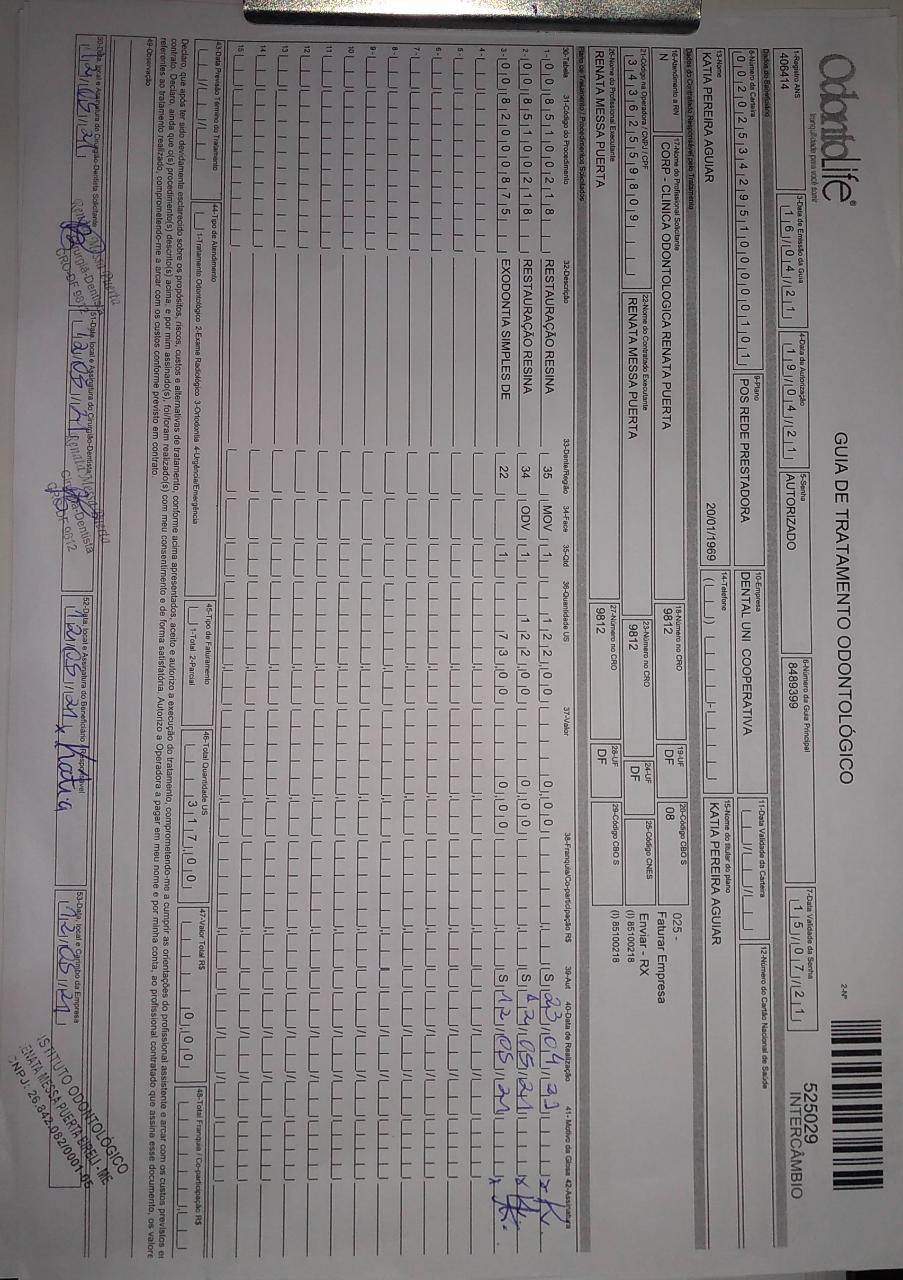 Odontolife®
tranquilidade para você sorrir
GUIA DE TRATAMENTO ODONTOLÓGICO
2-Nº
525029
INTERCÂMBIO
1-Registro ANS
406414
3-Data de Emissão da Guia
16/04/21
4-Data de Autorização
19/04/21
5-Senha
AUTORIZADO
6-Número da Guia Principal
8489399
7-Data Validade da Senha
15/07/21
Dados do Beneficiário
8-Número da Carteira
00202534295100000101
9-Plano
POS REDE PRESTADORA
10-Empresa
DENTAL UNI COOPERATIVA
11-Data Validade da Carteira
12-Número do Cartão Nacional de Saúde
13-Nome
KATIA PEREIRA AGUIAR
20/01/1969
14-Telefone
15-Nome do titular do plano
KATIA PEREIRA AGUIAR
Dados do Contratado Responsável pelo Tratamento
16-Atendimento a RN
N
17-Nome do Profissional Solicitante
CORP - CLINICA ODONTOLOGICA RENATA PUERTA
18-Número no CRO
9812
19-UF
DF
20-Código CBO S
08
025 -
Faturar Empresa
21-Código na Operadora / CNPJ / CPF
34362559809
22-Nome do Contratado Executante
RENATA MESSA PUERTA
23-Número no CRO
9812
24-UF
DF
25-Código CNES
Enviar - RX
(I) 85100218
(I) 85100218
26-Nome do Profissional Executante
RENATA MESSA PUERTA
27-Número no CRO
9812
28-UF
DF
29-Código CBO S
Plano de Tratamento / Procedimentos Solicitados
30-Tabela 31-Código do Procedimento 32-Descrição 33-Dente/Região 34-Face 35-Qtd 36-Quantidade US 37-Valor 38-Franquia/Co-participação R$ 39-Aut 40-Data de Realização 41-Motivo da Glosa 42-Assinatura
1- 00 85100218 RESTAURAÇÃO RESINA 35 MOV 1 122,00 0,00 S
2- 00 85100218 RESTAURAÇÃO RESINA 34 ODV 1 122,00 0,00 S 12/05/21
3- 00 82000875 EXODONTIA SIMPLES DE 22 1 73,00 0,00 S 12/05/21
4-
5-
6-
7-
8-
9-
10
11
12
13
14
15
43-Data Previsão Término do Tratamento
44-Tipo de Atendimento
1-Tratamento Odontológico 2-Exame Radiológico 3-Ortodontia 4-Urgência/Emergência
45-Tipo de Faturamento
1-Total 2-Parcial
46-Total Quantidade US
317,00
47-Valor Total R$
0,00
48-Total Franquia / Co-participação R$
Declaro, que após ter sido devidamente esclarecido sobre os propósitos, riscos, custos e alternativas de tratamento, conforme acima apresentados, aceito e autorizo a execução do tratamento, comprometendo-me a cumprir as orientações do profissional assistente e arcar com os custos previstos e
contrato. Declaro, ainda que o(s) procedimento(s) descrito(s) acima, e por mim assinado(s), foi/foram realizado(s) com meu consentimento e de forma satisfatória. Autorizo a Operadora a pagar em meu nome e por minha conta, ao profissional contratado que assina esse documento, os valore
referentes ao tratamento realizado, comprometendo-me a arcar com os custos conforme previsto em contrato
49-Observação
50-Data, local e Assinatura do Cirurgião-Dentista Solicitante
51-Data, local e Assinatura do Cirurgião-Dentista
12/05/21
52-Data, local e Assinatura do Beneficiário / Responsável
12/05/21 x Katia
53-Data, local e Carimbo da Empresa
12/05/21
Cirurgiã-Dentista
CRO-DF 9812
Cirurgiã-Dentista
CRO-DF 9812
STITUTO ODONTOLÓGICO
ENATA MESSA PUERTA EIRELI - ME
CNPJ: 26.842.082/0001-05